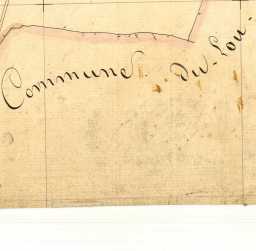 Commune du Lou